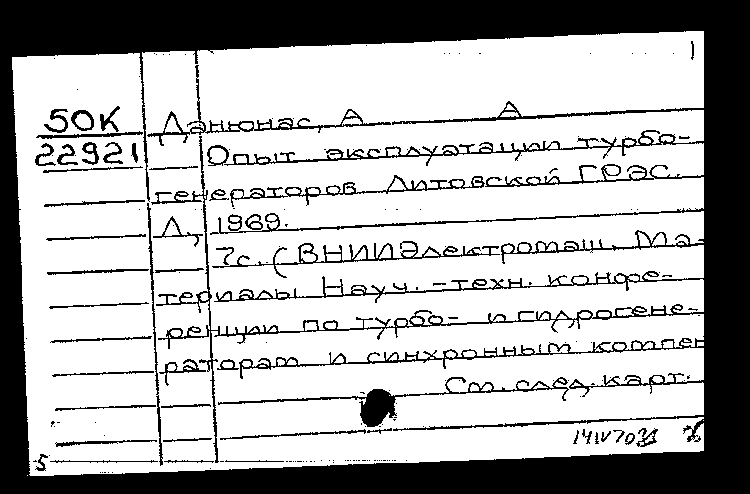 1
50К Данюнас, А А
22921 Опыт эксплуатации турбо-
генераторов Литовской ГРЭС.
Л., 1969.
7с. (ВНИИЭлектромаш. Ма-
териалы Науч.-техн. конфе-
ренции по турбо- и гидрогене-
раторам и синхронным компен
См. след. карт.
14IV70
5